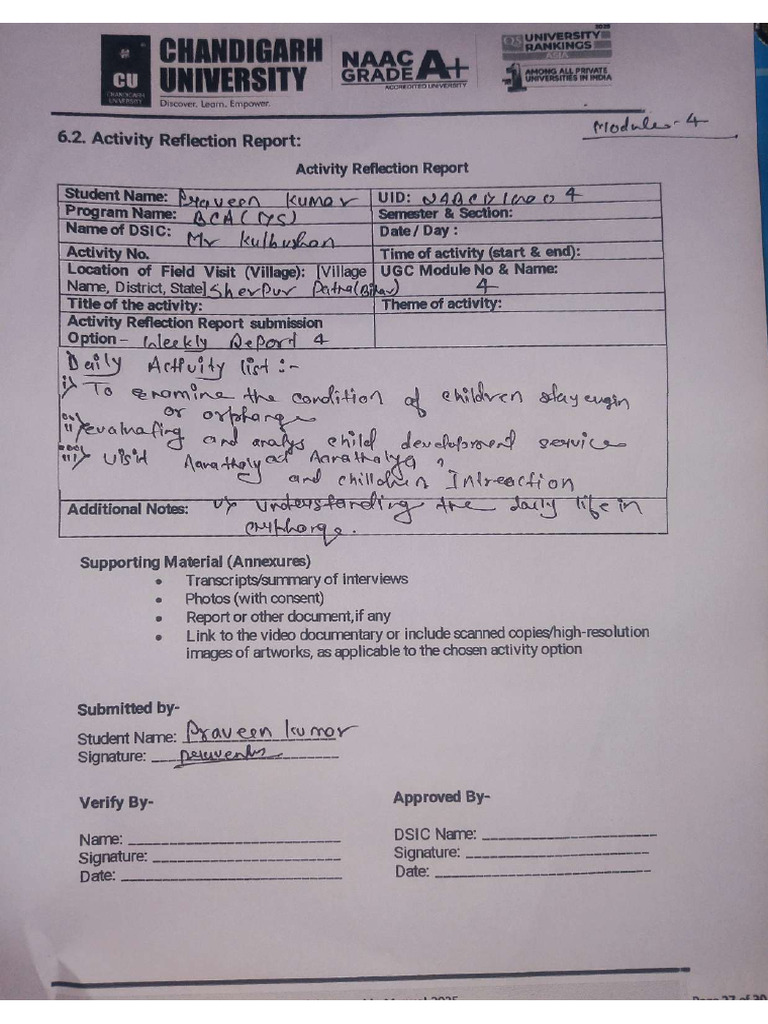 CU
CHANDIGARH
UNIVERSITY
CHANDIGARH
UNIVERSITY
Discover. Learn. Empower.
NAAC
GRADE A+
ACCREDITED UNIVERSITY
2025
QS UNIVERSITY
RANKINGS
ASIA
#1 AMONG ALL PRIVATE
UNIVERSITIES IN INDIA
Module - 4
6.2. Activity Reflection Report:
Activity Reflection Report
Student Name: Praveen Kumar UID:
Program Name: BCA (DS) Semester & Section:
Name of DSIC: Mr Kulbushan Date / Day :
Activity No. Time of activity (start & end):
Location of Field Visit (Village): [Village UGC Module No & Name:
Name, District, State] Sherpur Patna (Bihar) 4
Title of the activity: Theme of activity:
Activity Reflection Report submission
Option – Weekly Report 4
Daily Activity list :-
i) To examine the condition of children
or
ii) evaluating and analys child development service
iii) visit
and children
Additional Notes: understanding the daily life in
Supporting Material (Annexures)
• Transcripts/summary of interviews
• Photos (with consent)
• Report or other document,if any
• Link to the video documentary or include scanned copies/high-resolution
images of artworks, as applicable to the chosen activity option
Submitted by-
Student Name: Praveen Kumar
Signature:
Verify By- Approved By-
Name: DSIC Name:
Signature: Signature:
Date: Date: